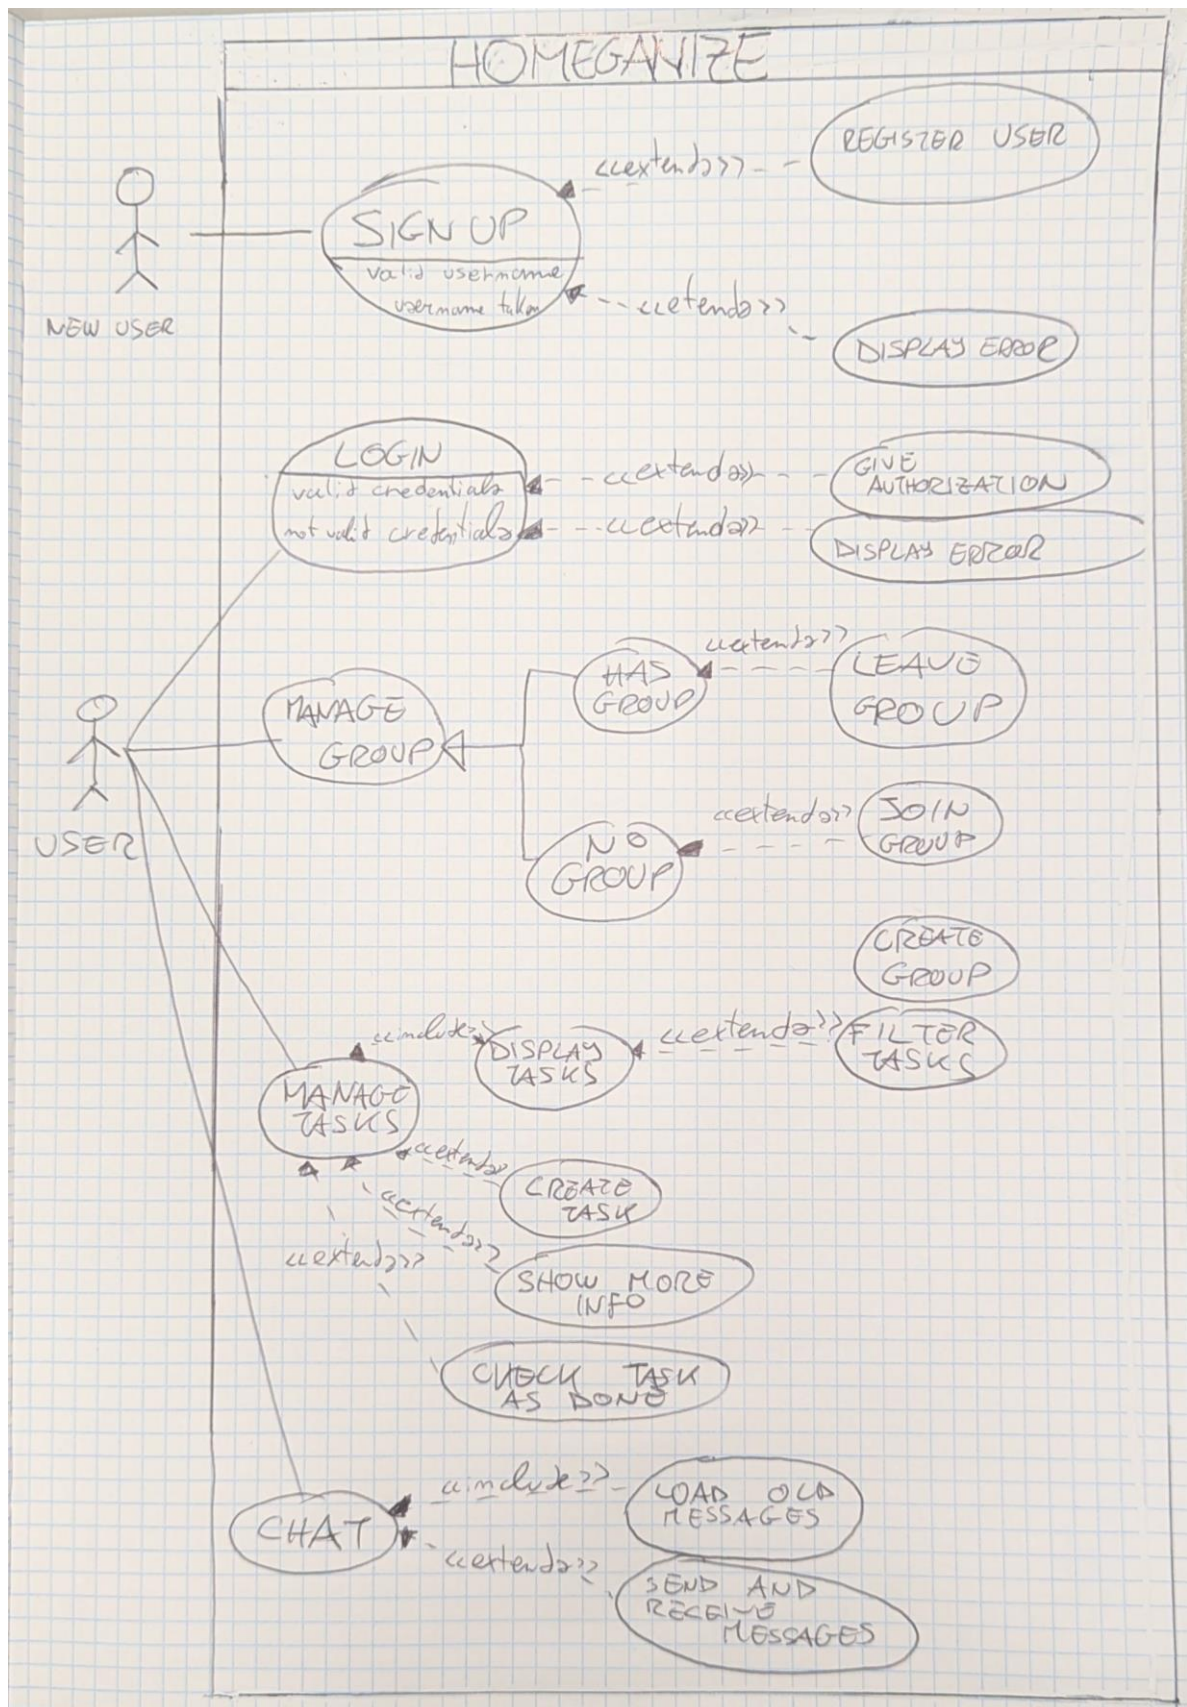 HOMEGANIZE
REGISTER USER
<<extends>>
SIGN UP
valid username
username taken
<<etends>>
NEW USER
DISPLAY ERROR
LOGIN
valid credentials
not valid credentials
<<extends>>
GIVE
AUTHORIZATION
<<extends>>
DISPLAY ERROR
MANAGE
GROUP
HAS
GROUP
<<extends>>
LEAVE
GROUP
USER
NO
GROUP
<<extends>>
JOIN
GROUP
CREATE
GROUP
<<include>>
DISPLAY
TASKS
<<extends>>
FILTER
TASKS
MANAGE
TASKS
<<extends>>
CREATE
TASK
<<extends>>
SHOW MORE
INFO
<<extends>>
CHECK TASK
AS DONE
CHAT
<<include>>
LOAD OLD
MESSAGES
<<extends>>
SEND AND
RECEIVE
MESSAGES